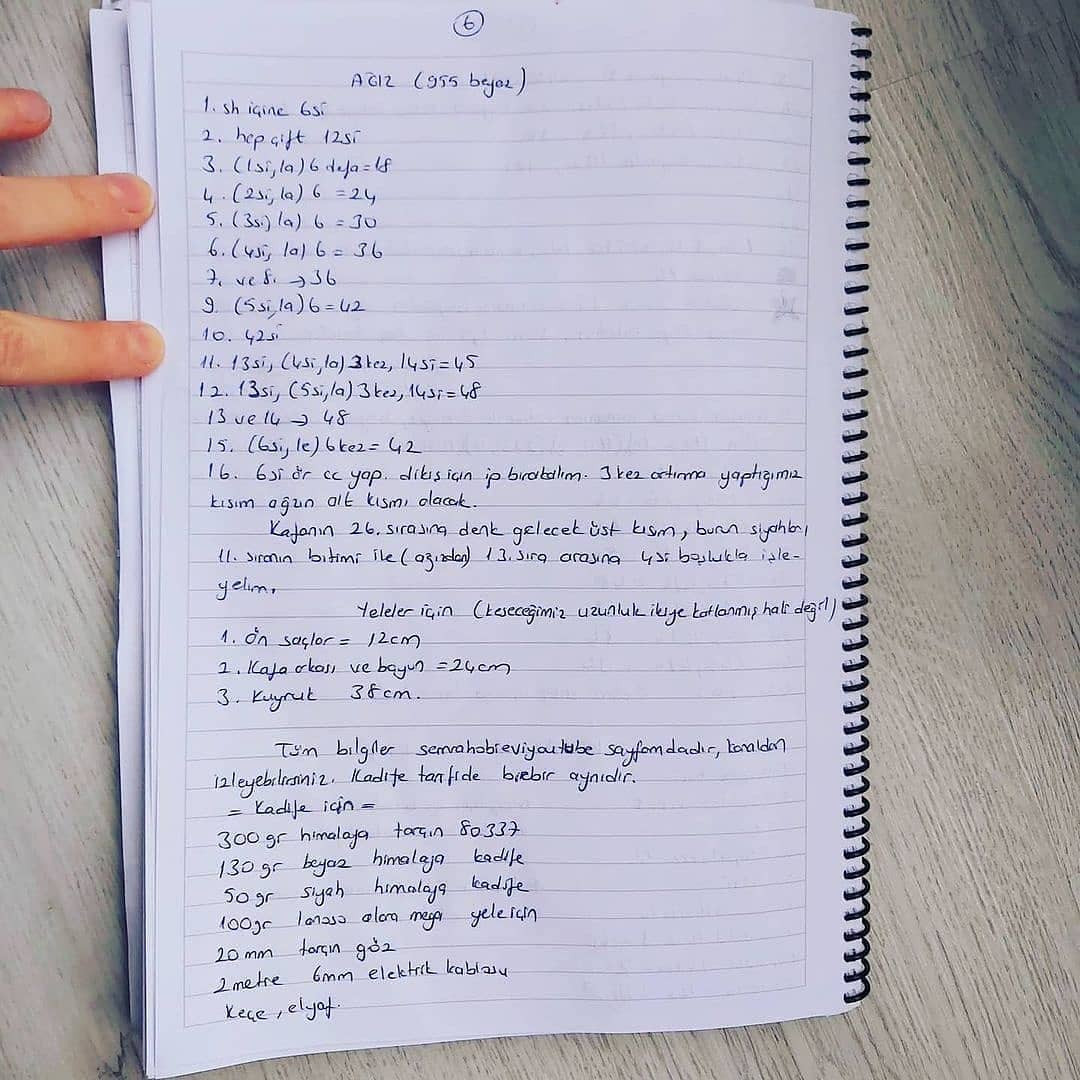 6
AĞIZ (955 beyaz)
1. sh içine 6si
2. hep çift 12si
3. (1si, 1a) 6 defa = 18
4. (2si, 1a) 6 = 24
5. (3si, 1a) 6 = 30
6. (4si, 1a) 6 = 36
7. ve 8. → 36
9. (5si, 1a) 6 = 42
10. 42si
11. 13si, (4si, 1a) 3 kez, 14si = 45
12. 13si, (5si, 1a) 3 kez, 14si = 48
13 ve 14 → 48
15. (6si, 1e) 6 kez = 42
16. 6si ör cc yap. dikiş için ip bırakalım. 3 kez artırma yaptığımız
kısım ağzın alt kısmı olacak.
Kafanın 26. sırasına denk gelecek üst kısım, burun siyahla
11. sıranın bitimi ile (ağızdan) 13. sıra arasına 4si boşlukla işle-
yelim.
Yeleler için (keseceğimiz uzunluk ikiye katlanmış hali değil)
1. Ön saçlar = 12cm
2. Kafa arkası ve boyun = 24cm
3. Kuyruk 38cm.
Tüm bilgiler semrahobieviyoutube sayfamdadır, kanaldan
izleyebilirsiniz. Kadife tarifide birebir aynıdır.
= Kadife için =
300 gr himalaya tarçın 80337
130 gr beyaz himalaya kadife
50 gr siyah himalaya kadife
100gr lanoso alara mega yele için
20 mm tarçın göz
2 metre 6mm elektrik kablosu
Keçe, elyaf.